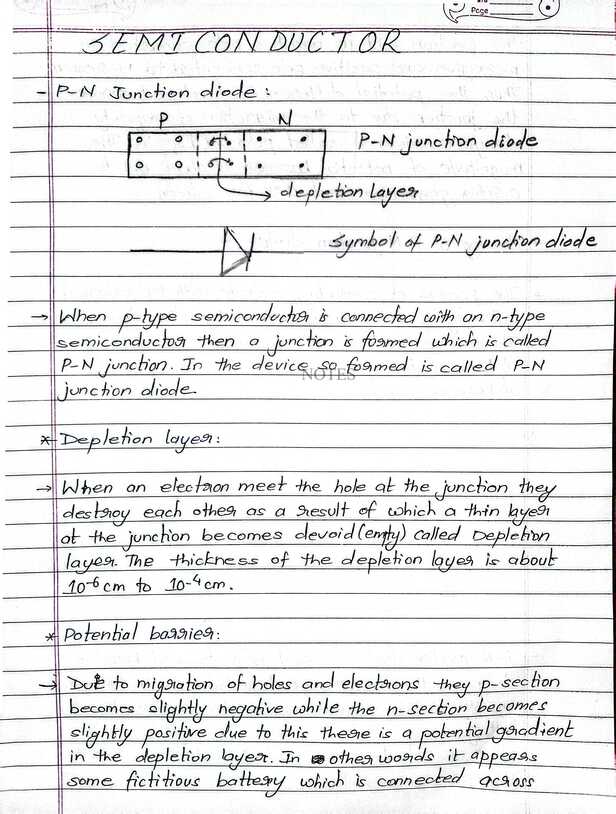 Page
SEMICONDUCTOR
- P-N Junction diode :
P N
P-N junction diode
depletion layer
Symbol of P-N junction diode
→ When p-type semiconductor is connected with an n-type
semiconductor then a junction is formed which is called
P-N junction. In the device so formed is called P-N
NOTES
junction diode.
* Depletion layer:
→ When an electron meet the hole at the junction they
destroy each other as a result of which a thin layer
at the junction becomes devoid (empty) called Depletion
layer. The thickness of the depletion layer is about
10⁻⁶ cm to 10⁻⁴ cm.
* Potential barrier:
→ Due to migration of holes and electrons they p-section
becomes slightly negative while the n-section becomes
slightly positive due to this there is a potential gradient
in the depletion layer. In other words it appears
some fictitious battery which is connected across